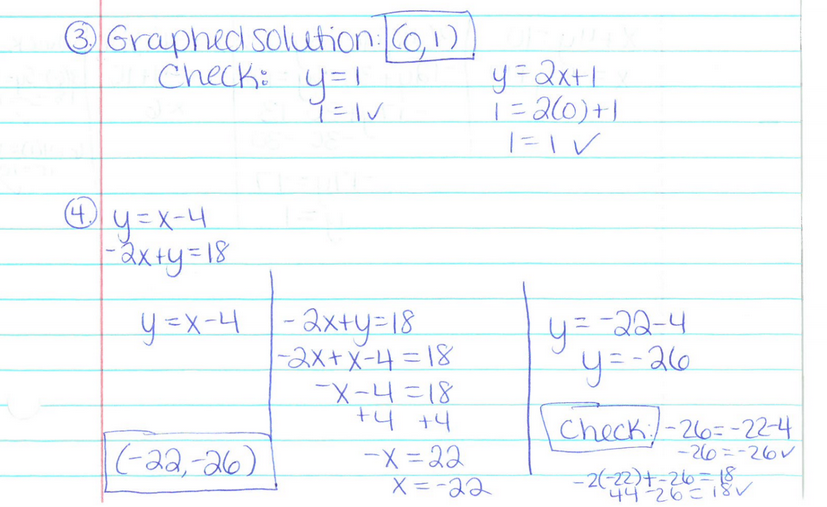 ③ Graphed solution: (0,1)
Check: y=1
1=1✓
y=2x+1
1=2(0)+1
1=1 ✓
④ y=x-4
-2x+y=18
y=x-4
(-22,-26)
-2x+y=18
-2x+x-4=18
-x-4=18
+4 +4
-x=22
x=-22
y=-22-4
y=-26
Check: -26=-22-4
-26=-26✓
-2(-22)+-26=18
44-26=18✓